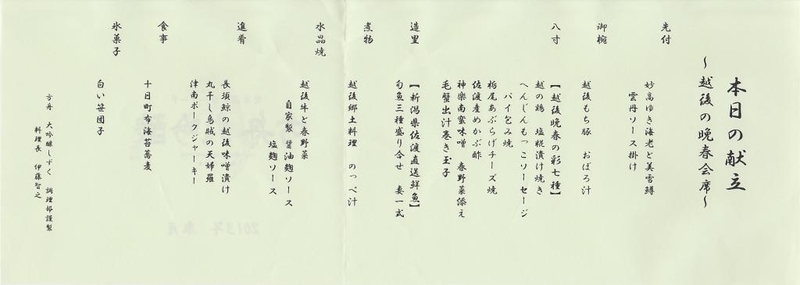 本日の献立
～越後の晩春会席～
先付
妙高ゆき海老と美雪鱒
雲丹ソース掛け
御椀
越後もち豚 おぼろ汁
八寸
【越後晩春の彩七種】
越の鶏 塩糀漬け焼き
へんじんもっこソーセージ
パイ包み焼
栃尾あぶらげチーズ焼
佐渡産めかぶ酢
神楽南蛮味噌 春野菜添え
毛蟹出汁巻き玉子
造里
【新潟県佐渡直送鮮魚】
旬魚三種盛り合せ 妻一式
煮物
越後郷土料理 のっぺ汁
水晶焼
越後牛と春野菜
自家製 醤油麹ソース
塩麹ソース
進肴
長須鯨の越後味噌漬け
丸干し烏賊の天婦羅
津南ポークジャーキー
食事
十日町布海苔蕎麦
氷菓子
白い笹団子
方舟 大吟醸しずく 調理部謹製
料理長 伊藤智之